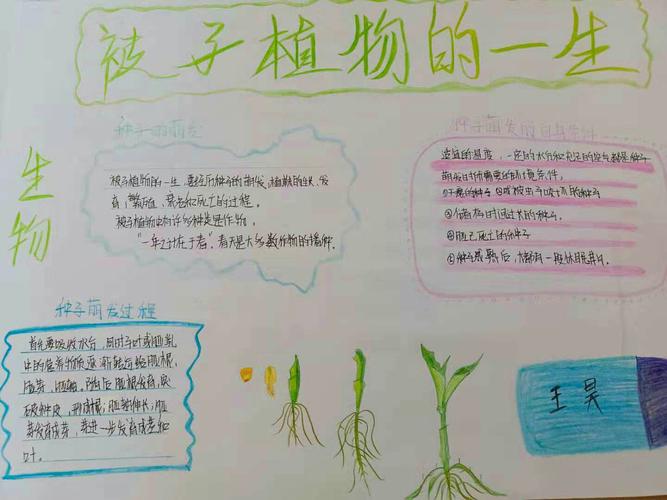 被子植物的一生
生物
种子的萌发
被子植物的一生,要经历种子的萌发,植株的生长、发
育、繁殖、衰老和死亡的过程。
被子植物中的许多种类是作物。
"一年之计在于春",春天是大多数作物的播种。
种子萌发的自身条件
适宜的温度,一定的水分和充足的空气都是种子
萌发时所需要的环境条件。
②被虫子咬过的种子
③储存时间过长的种子。
④已死亡的种子
种子成熟后,大都有一段休眠期。
种子萌发过程
首先要吸收水分,同时子叶或胚乳
中的营养物质逐渐转运给胚根、
胚芽、胚轴。随后胚根发育,突
破种皮,形成根;胚轴伸长;胚
芽发育成芽,芽进一步发育成茎和
叶。
王昊